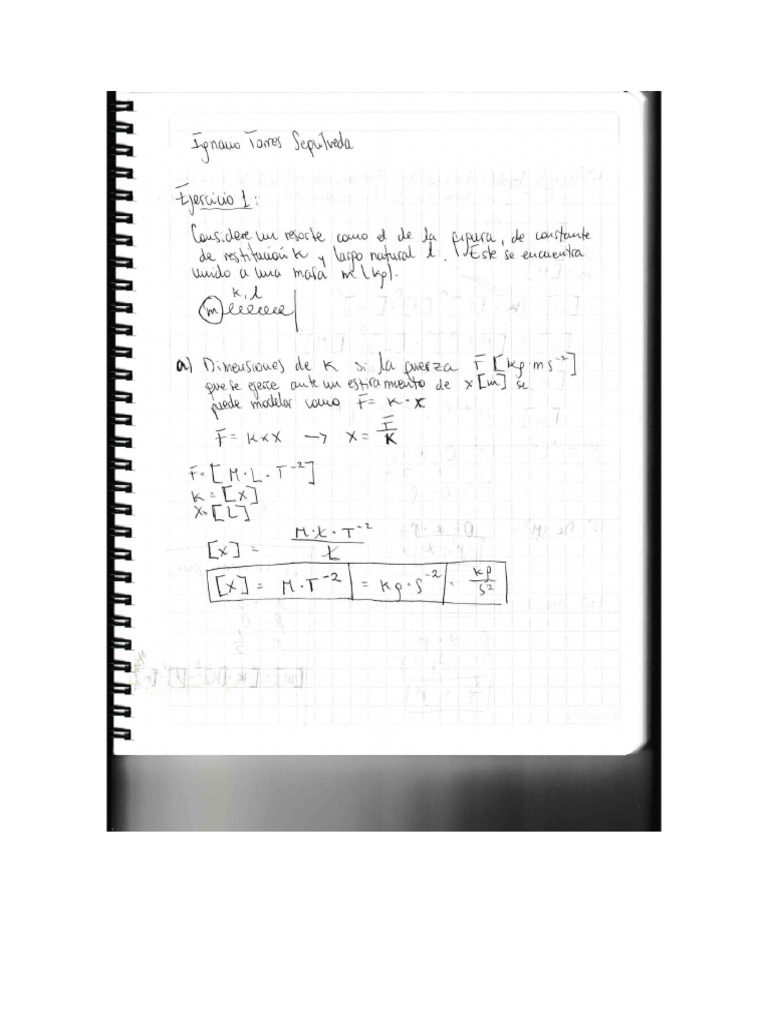 Ignacio Torres Sepúlveda
Ejercicio 1:
Considere un resorte como el de la figura, de constante
de restitución K y largo natural l. Este se encuentra
unido a una masa m [kg].
K, l
m
a) Dimensiones de K si la fuerza F [kg·m s⁻²]
que se ejerce ante un estiramiento de x [m] se
puede modelar como F = K · x
F = K × X → X = F/K
F = [M · L · T⁻²]
K = [X]
X = [L]
[X] = M·L·T⁻²/L
[X] = M·T⁻² = kg·s⁻² = kg/s²